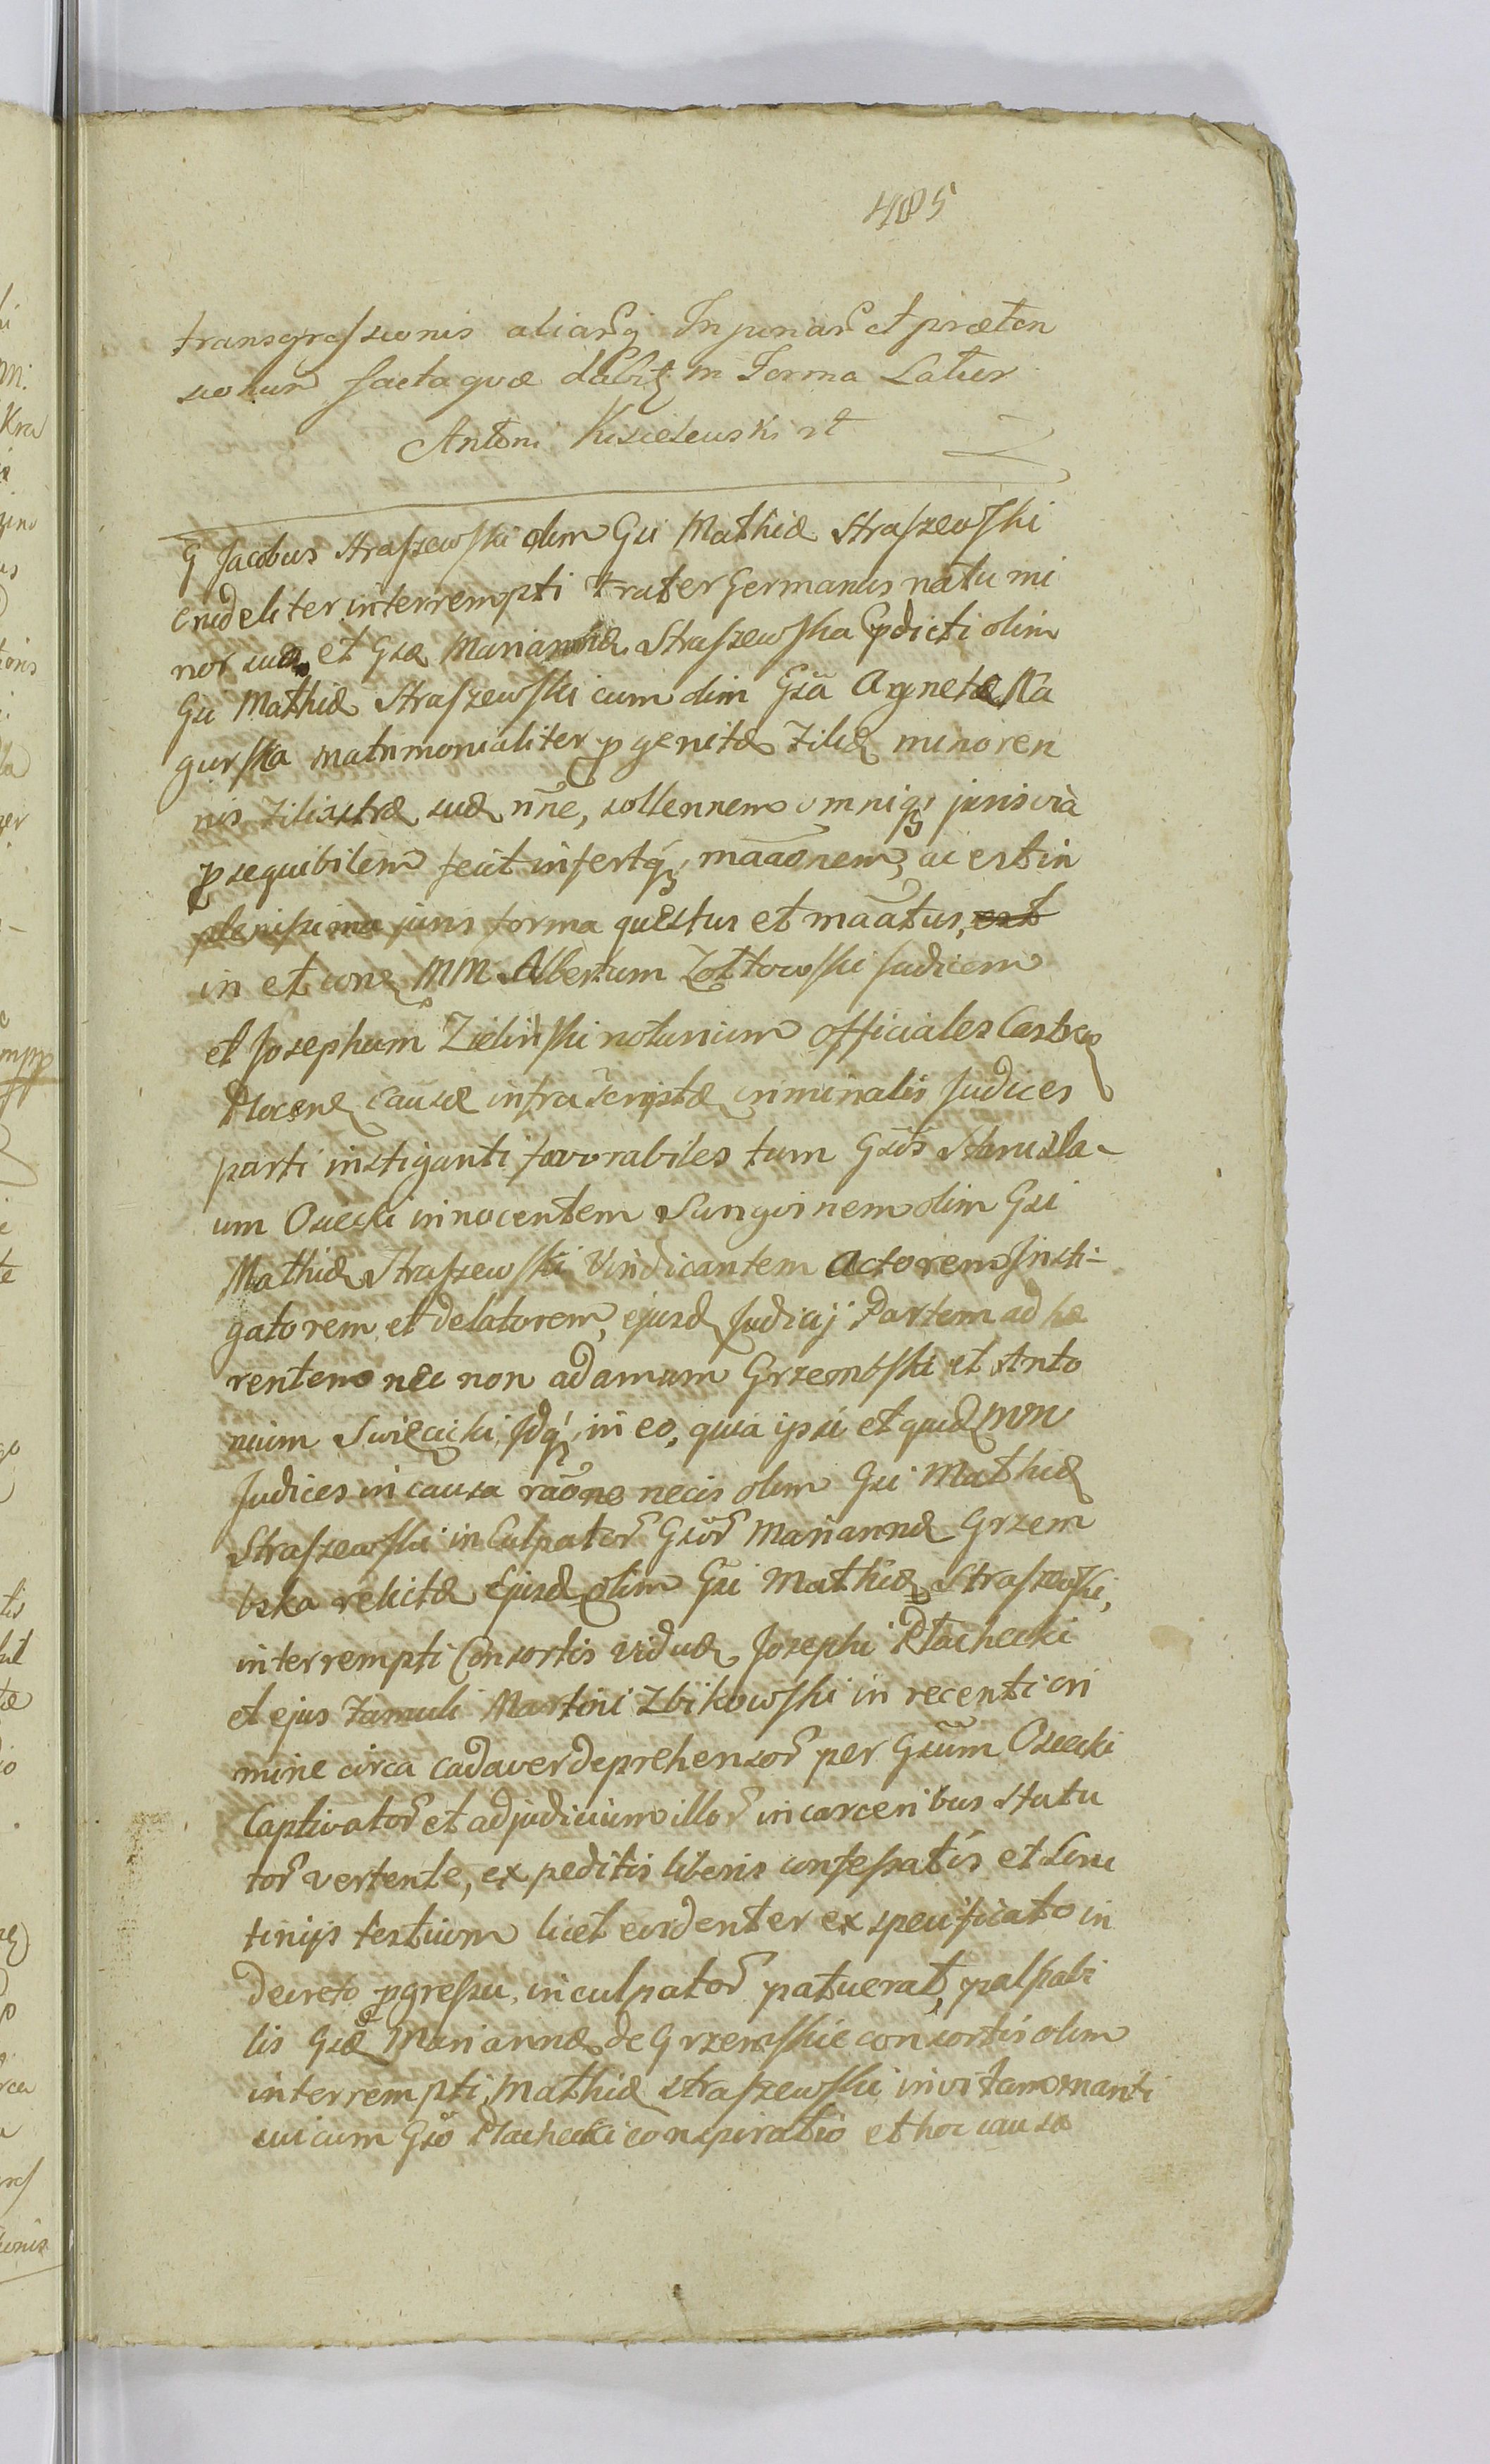 485
transgressionis aliarq Injuriar et præten
sionum facta quæ dabit in Forma Latior
Antoni Kisielewski rt
G Jacobus Straszewski olim Gsi Mathiæ Straszewski
crudeliter interrempti Frater Germanus natu mi
nor suo et Gsæ Mariannæ Straszewska pdicti olim
Gsi Mathiæ Straszewski cum olim Gsa Agneta Ka
gurska matrimonialiter pgenitæ Filiæ minoren
nis Filiastræ suæ nne, sollennem omniq juris via
psequibilem fecit infertq maãonem, ac est in
plenissima juris forma questus et maãtus, est
in et cone MM Albertum Zołtowski Judicem
et Josephum Zieliński notarium officiales Castren
Plocens causæ infrascriptæ criminalis Judices
parti instiganti favorabiles tum Gsus Stanisla-
um Osiecki innocentem Sanguinem olim Gsi
Mathiæ Straszewski Vindicantem Actorem Insti-
gatorem et delatorem, ejusd Judicij Partem adhæ
rentem nec non adamum Grzembski et Anto
nium Swięcicki Jdq in eo, quia ipsi et quid MM
Judices in causa raõne necis olim Gsi Mathiæ
Straszewski in Culpator Gsor Mariannæ Grzem
bska relictæ Ejusd olim Gsi Mathiæ Straszewski,
interrempti Consortis viduæ Josephi Płachecki
et ejus Famuli Martini Zbikowski in recenti cri
mine circa cadaver deprehensor per Gsum Osiecki
Captivator et ad judicium illor in carceribus statu
tor vertente, expeditis liberis confessatis et Scru
tinijs testium licet evidenter ex specificato in
decreto pgressu, inculpator patuerat, palpabi
lis Gsæ Mariannæ de Grzemskie consortis olim
interrempti Mathiæ Straszewski in vitam mariti
sui cum Gso Płachecki conspiratio et hoc causa